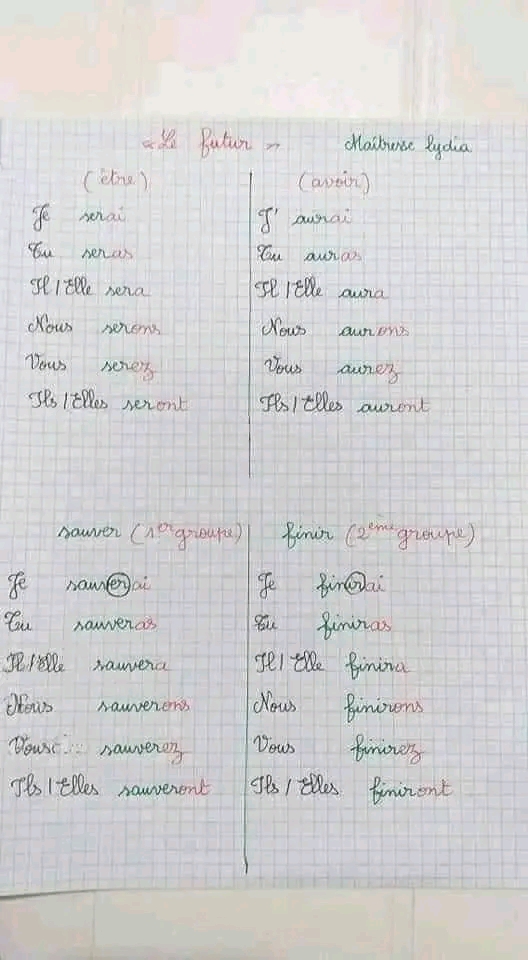 « Le futur » Maîtresse Lydia
(être) (avoir)
Je serai J' aurai
Tu seras Tu auras
Il / Elle sera Il / Elle aura
Nous serons Nous aurons
Vous serez Vous aurez
Ils / Elles seront Ils / Elles auront
sauver (1er groupe) finir (2ème groupe)
Je sauverai Je finirai
Tu sauveras Tu finiras
Il / Elle sauvera Il / Elle finira
Nous sauverons Nous finirons
Vous sauverez Vous finirez
Ils / Elles sauveront Ils / Elles finiront